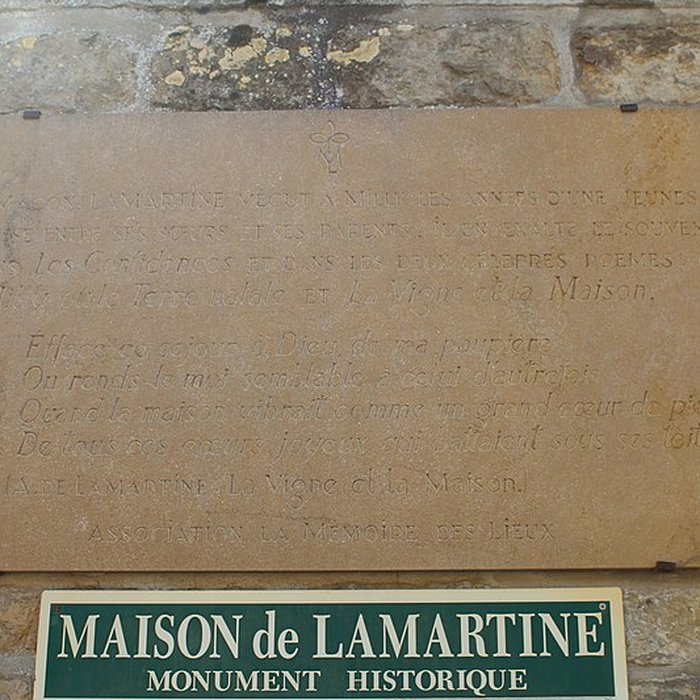 MACON, LAMARTINE VECUT A MILLY LES ANNEES D'UNE JEUNES
SE ENTRE SES SŒURS ET SES PARENTS. IL EN EXALTE LE SOUVEN
Les Confidences ET DANS LES DEUX CELEBRES POEMES
Milly ou la Terre natale ET La Vigne et la Maison.
Efface ce sejour, ô Dieu, de ma paupiere
Ou rends-le moi semblable a celui d'autrefois
Quand la maison vibrait comme un grand cœur de pie
De tous ces cœurs joyeux qui battaient sous ses toit
(A. DE LAMARTINE, La Vigne et la Maison.)
ASSOCIATION LA MEMOIRE DES LIEUX
MAISON de LAMARTINE
MONUMENT HISTORIQUE